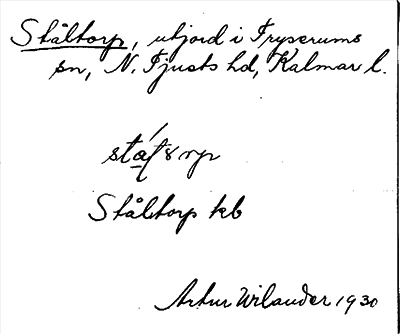 Ståltorp, utjord i Tryserums
sn, N. Tjusts hd, Kalmar l.
Ståltorp kb
Artur Wilander 1930